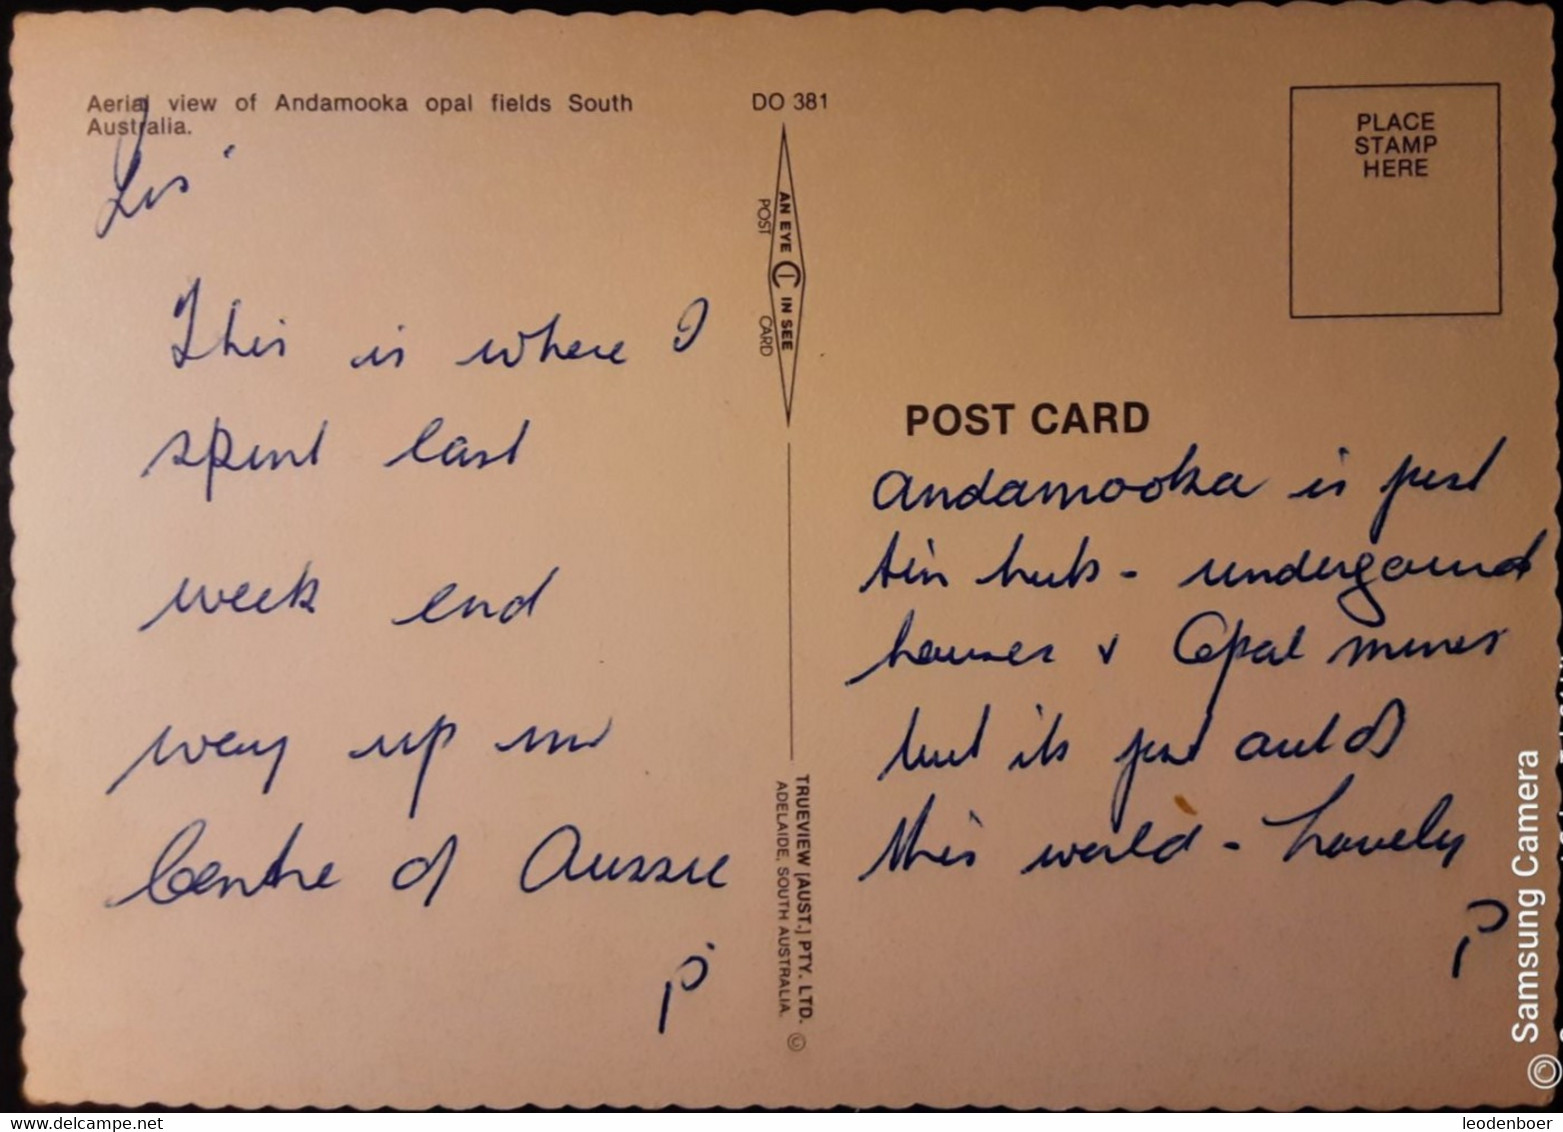 Aerial view of Andamooka opal fields South
Australia.
Lis
This is where I
spent last
week end
way up in
Centre of Aussie
P
DO 381
AN EYE IN SEE
POST CARD
TRUEVIEW (AUST.) PTY. LTD. ©
ADELAIDE, SOUTH AUSTRALIA.
PLACE
STAMP
HERE
POST CARD
Andamooka is just
tin huts - undergound
houses & Opal mines
but its just out of
this world - Lovely
P
© Samsung Camera
hipshopcollect
leodenboer